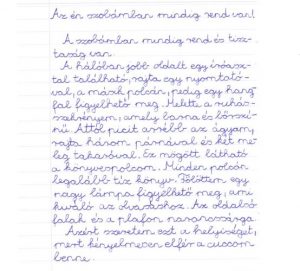 Az én szobámban mindig rend van!
A szobámban mindig rend és tisz-
taság van.
A hálóban jobb oldalt egy íróasz-
tal található, rajta egy nyomtató-
val, a másik polcán, pedig egy hang
fal figyelhető meg. Mellette a ruhás-
szekrényem, amely barna és bőrszí-
nű. Attól picit arrébb az ágyam,
rajta három párnával és két me-
leg takaróval. Ez mögött látható
a könyvespolcom. Minden polcon
legalább tíz könyv. Fölöttem egy
nagy lámpa figyelhető meg, ami
kiváló az olvasáshoz. Az oldalsó
falak és a plafon narancssárga.
Azért szeretem ezt a helyiséget,
mert kényelmesen elfér a cuccom
benne.